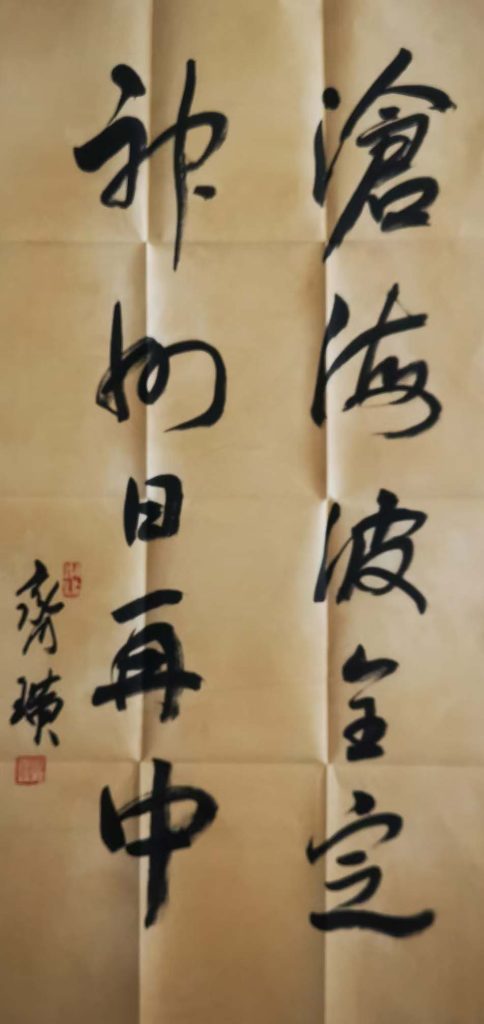 滄海波全定
神州日再中
齊璜